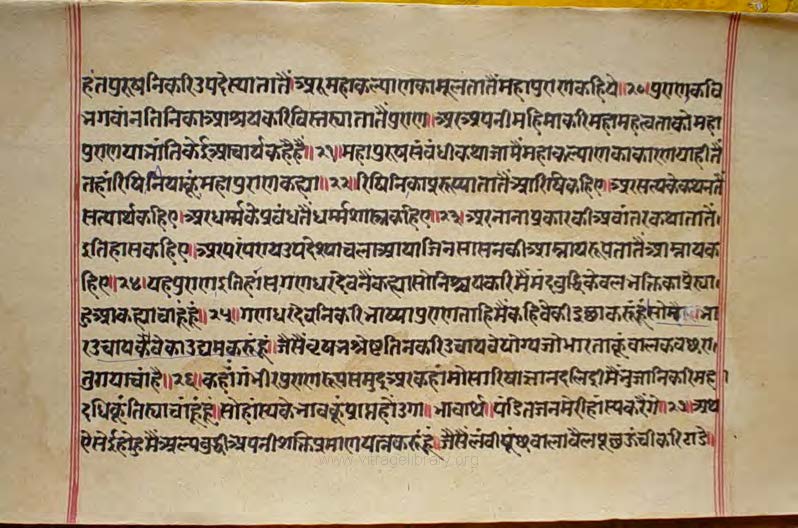 हंतपुरुषनिकरिउपदेस्यातातैं॥अरमहाकल्याणकामूलतातैंमहापुराणकहिये॥२०॥पुराणकवि
भगवांनतिनिकाआश्रयकरिविस्तस्यातातैंपुराण॥अरअपनीमहिमाकरिमहामहत्वताकोमहा
पुराणयाभांतिकेईआचार्यकहैहै॥२१॥महापुरुषसंवंधीकथाजामैंमहाकल्याणकाकारणयाहीतैं
तहांरिषिनियाकूंमहापुराणकह्या॥२२॥रिषिनिकाप्ररूप्यातातैंआरिषकहिए॥अरसत्यकेकथनतैं
सत्यार्थकहिए॥अरधर्मकेप्रवंधतैंधर्मशास्त्रकहिए॥२३॥अरनानाप्रकारकीअवांतरकथातातैं
इतिहासकहिए॥अरपरंपरायउपदेश्याचलाआयाजिनसासनकीआम्नायरूपतातैंआम्नायक
हिए॥२४॥यहपुराणइतिहासगणधरदेवनैंकह्यासोनिश्चयकरिमैंमंदवुद्धिकेवलभक्तिकाप्रेर्या
हुआकह्याचाहूंहूं॥२५॥गणधरदेवनिकरिभाष्यापुराणताहिमैंकहिवेकीइच्छाकरूंहूं
रउचायवैकाउद्यमकरूंहूं॥जैसैंवृषभश्रेष्ठतिनकरिउचायवेयोग्यजोभारताकूंवालकवछरा
तुगयाचाहै॥२६॥कहांगंभीरपुराणरूपसमुद्रअरकहांमोसारिषाज्ञानदलिद्रीमैंभुजानिकरिमहा
दधिकूंतिर्याचांहूंहूं॥सोहास्यकेभावकूंप्राप्तहोउगा॥भावार्थ॥पंडितजनमेरीहास्यकरैंगे॥२७॥अथ
ऐसेईहोहुमैंअल्पवुद्धीअपनीशक्तिप्रमाणयत्नकरूंहूं॥जैसैंलंवीपूंछवालावैलपूछऊंचीकरिगडे
www.vitragelibrary.org